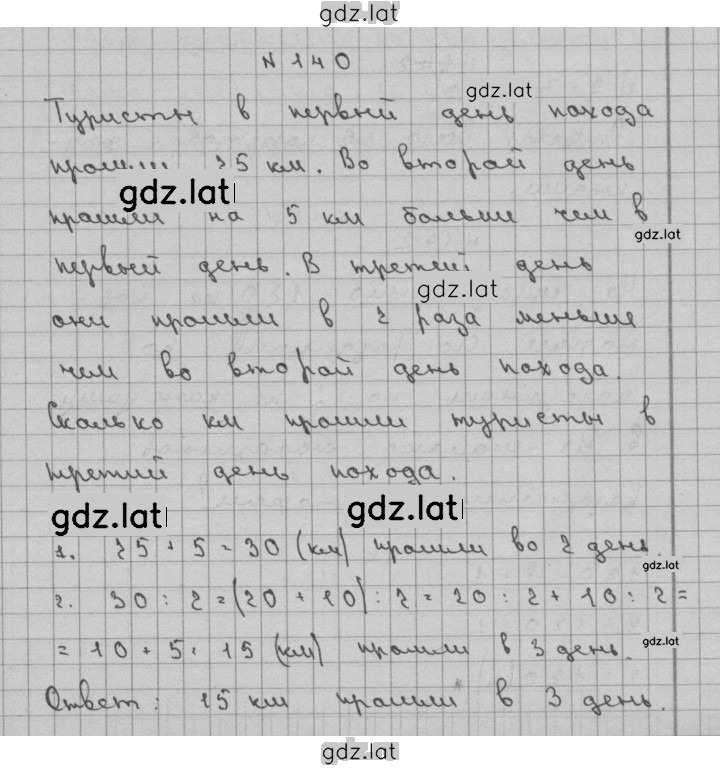 gdz.lat
N 140
gdz.lat
Туристы в первый день похода
прошли 25 км. Во второй день
gdz.lat
прошли на 5 км больши чем в
gdz.lat
первый день. В третий день
gdz.lat
они прошли в 2 раза меньше
чем во второй день похода.
Сколько км прошли туристы в
третий день похода.
gdz.lat gdz.lat
1. 25 + 5 = 30 (км) прошли во 2 день.
gdz.lat
2. 30 : 2 = (20 + 10) : 2 = 20 : 2 + 10 : 2 =
= 10 + 5 = 15 (км) прошли в 3 день.
gdz.lat
Ответ: 15 км прошли в 3 день.
gdz.lat